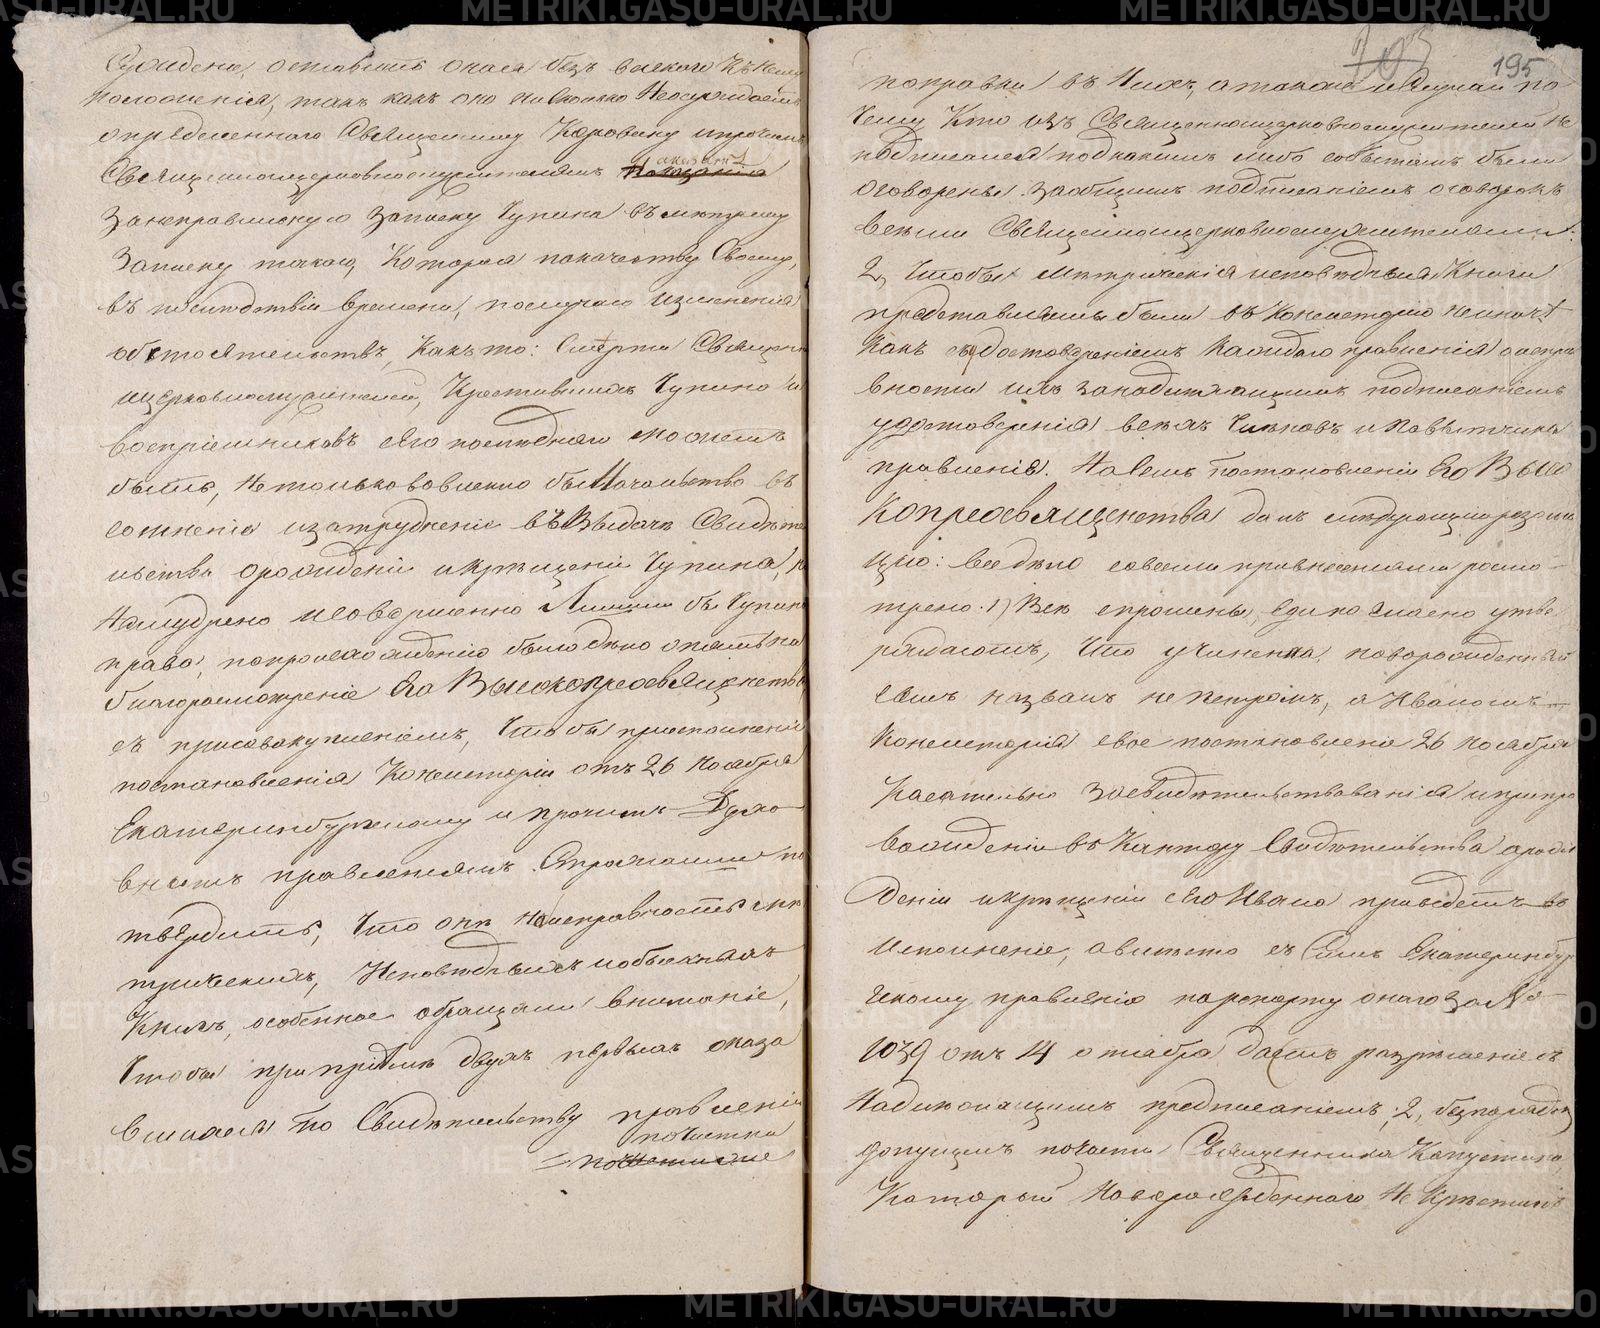 METRIKI.GASO-URAL.RU
сужденію, оставить онаго безъ всякаго къ нему
положенія, такъ какъ оно нисколько не
опредѣленнаго Священнику Коровину и прочимъ
Священноцерковнослужителямъ
за неправильную записку Чупина въ метрику
записку такую, которая по качеству своему,
въ послѣдствіи времени, по случаю измѣненія
обстоятельствъ, какъ то: смерти Священно
церковнослужителей, крестившихъ Чупина и
воспріемниковъ его послѣдняго можетъ
быть, не только вовлекло бы Начальство въ
сомненіе и затрудненіе въ выдачѣ Свидѣте
льства о рожденіи и крещеніи Чупина, но
не мудрено и совершенно лишило бы Чупина
права, по происхожденію было дѣло опять на
благоразсмотреніе Его Высокопреосвященства
съ присовокупленіемъ, чтобы
постановленія Консисторіи отъ 26 Ноября
Екатеринбургскому и прочимъ Духо
внымъ правленіямъ строжайше по
твердить, что они на исправность мет
рическихъ, исповѣдныхъ и обыскныхъ
книгъ, особенное обращали вниманіе,
чтобы при пріемѣ двухъ первыхъ оказа
вшіяся по Свидѣтельству правленія
почистки
195
поправки въ нихъ, а также и случаи по
чему кто изъ Священноцерковнослужителей не
подписался подъ какимъ либо событіемъ были
оговорены за общимъ подписаніемъ оговорокъ
всѣми Священноцерковнослужителями.
2, Чтобы метрическія и исповѣдныя книги
представляемы были въ Консисторію не иначе
какъ съ удостовѣреніемъ каждаго правленія о испра
вности ихъ за надлежащимъ подписаніемъ
удостоверенія всѣхъ членовъ и повытчика
правленія. На семъ постановленіи Его Высо
копреосвященства далъ слѣдующую резолю
цію: все дѣло со всѣми правленіями
трено. 1) Всѣ спрошены, единогласно утве
рждаютъ, что у Чупина, новорожденный
сынъ названъ не Петромъ, а Иваномъ
Консисторія свое постановленіе 26 Ноября
касательно засвидѣтельствованія и препро
вожденія въ Контору Свидѣтельства о рож
деніи и крещеніи его Ивана приведетъ въ
исполненіе, а вмѣстѣ съ симъ Екатеринбур
скому правленію по репорту онаго за №
1039 отъ 14 октября дастъ разрѣшеніе съ
надлежащимъ предписаніемъ; 2, безпорядокъ
допущенъ по части Священника Капустина,
который новорожденнаго не крестилъ